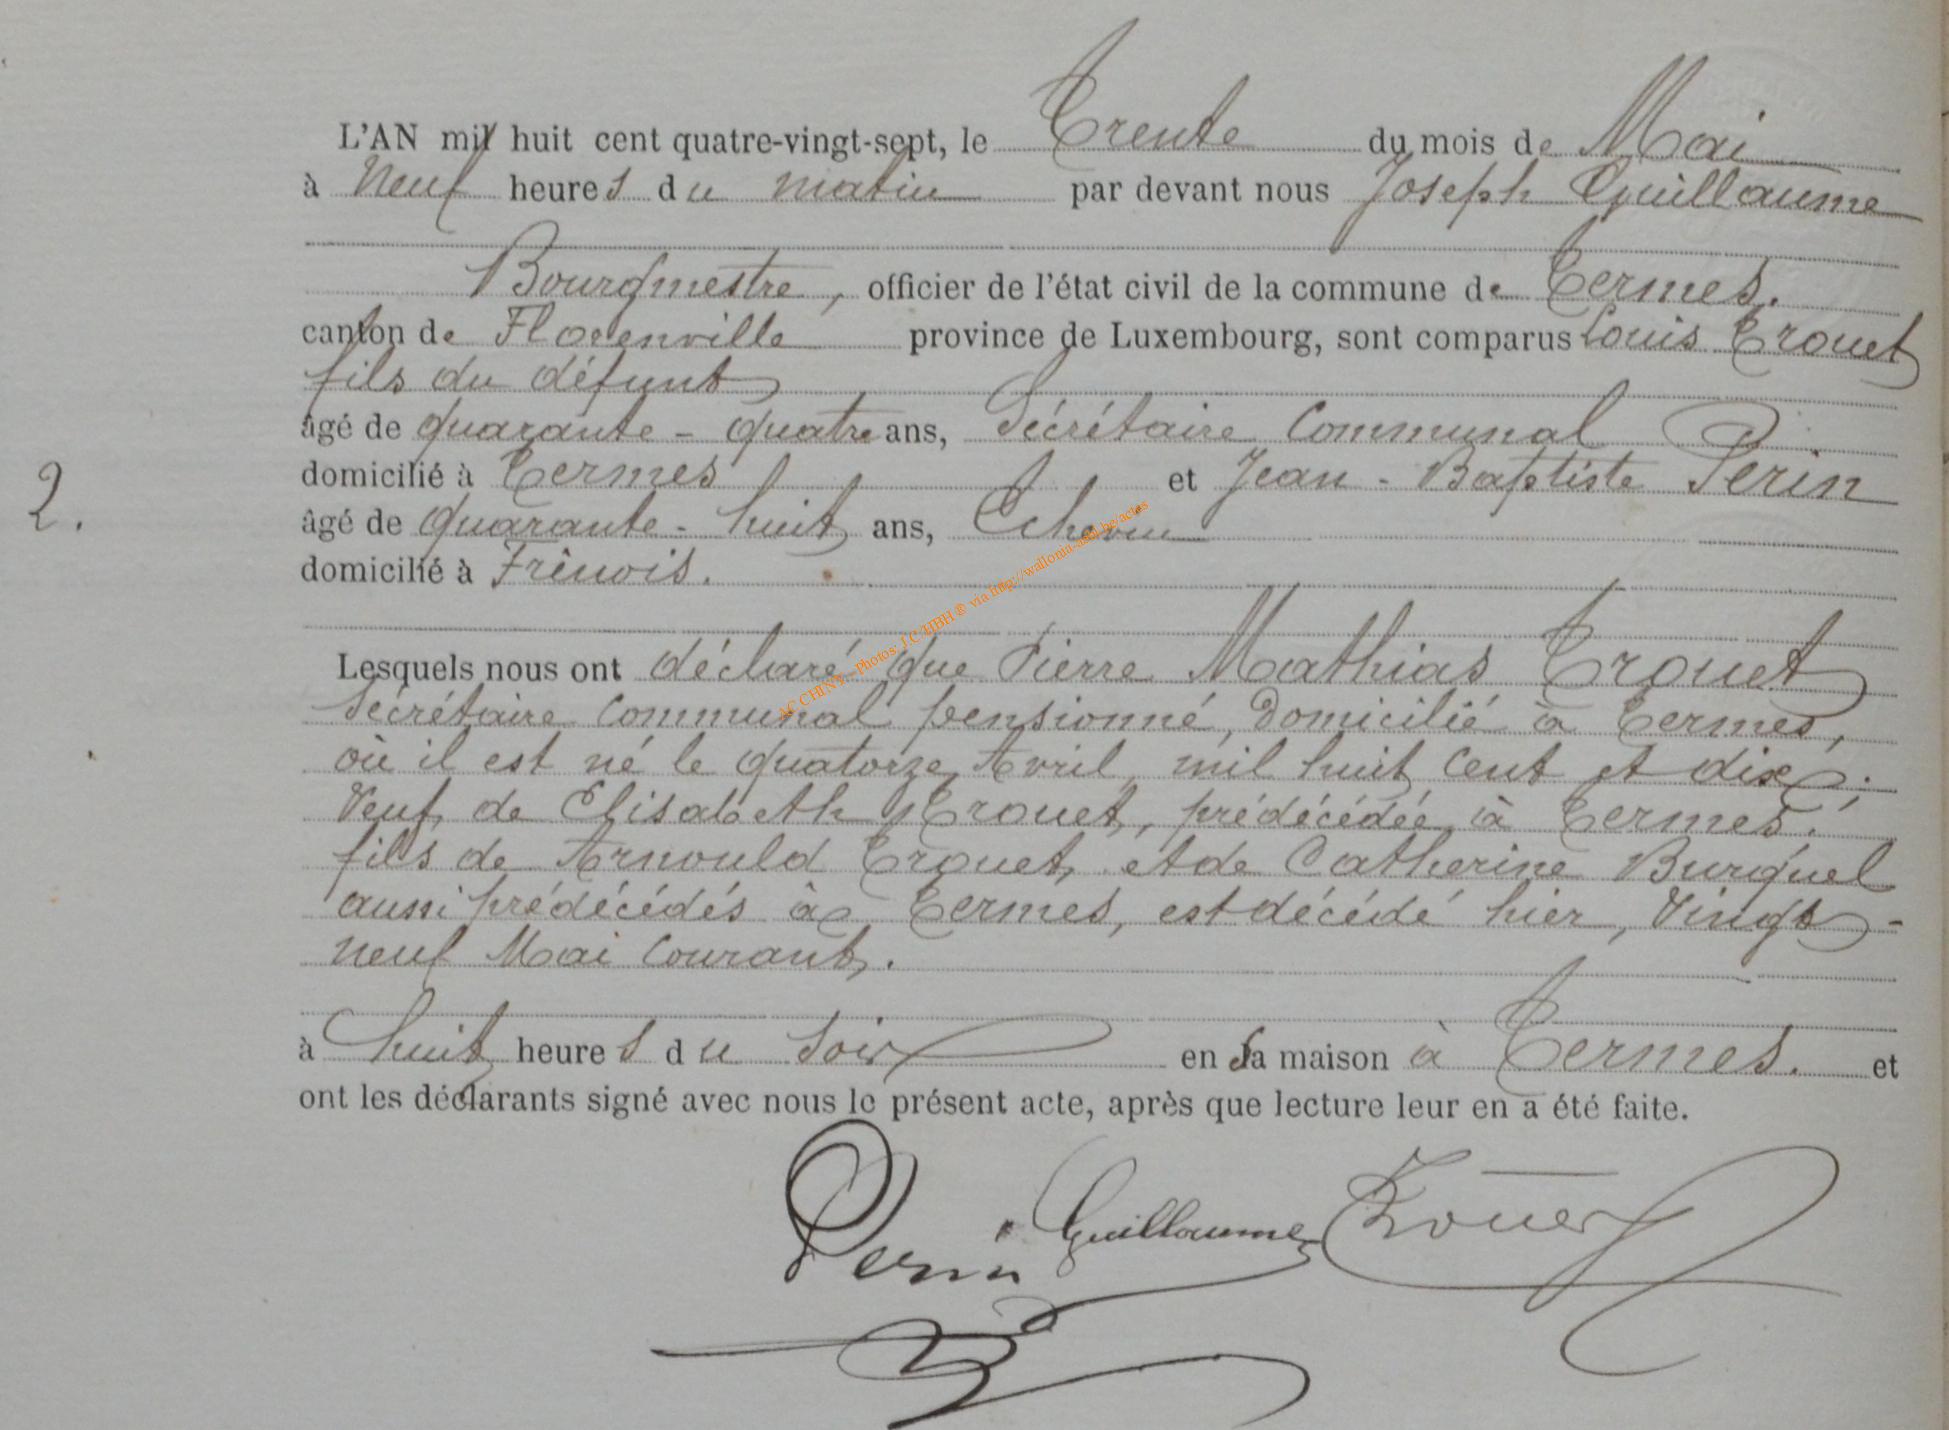 L'AN mil huit cent quatre-vingt-sept, le Trente du mois de Mai
à Neuf heures du matin par devant nous Joseph Guillaume
Bourgmestre, officier de l'état civil de la commune de Termes.
canton de Florenville province de Luxembourg, sont comparus Louis Trouet
fils du défunt
âgé de quarante-quatre ans, Sécrétaire Communal
domicilié à Termes et Jean-Baptiste Perin
2.
âgé de quarante-huit ans, Echevin
domicilié à Frênois.
Lesquels nous ont déclaré que Pierre Mathias Trouet
Sécrétaire Communal pensionné, domicilié à Termes,
où il est né le quatorze Avril mil huit cent et dix;
Veuf de Elisabeth Trouet, prédécédée à Termes.
fils de Arnould Trouet, et de Catherine Burquel
aussi prédécédés à Termes, est décédé hier, Vingt-
neuf Mai Courant.
à huit heures du Soir en sa maison à Termes. et
ont les déclarants signé avec nous le présent acte, après que lecture leur en a été faite.
Perin Guillaume Trouet
AC CHINY - Photos: J.C HBH ® via http://wallonia-asbl.be/actes